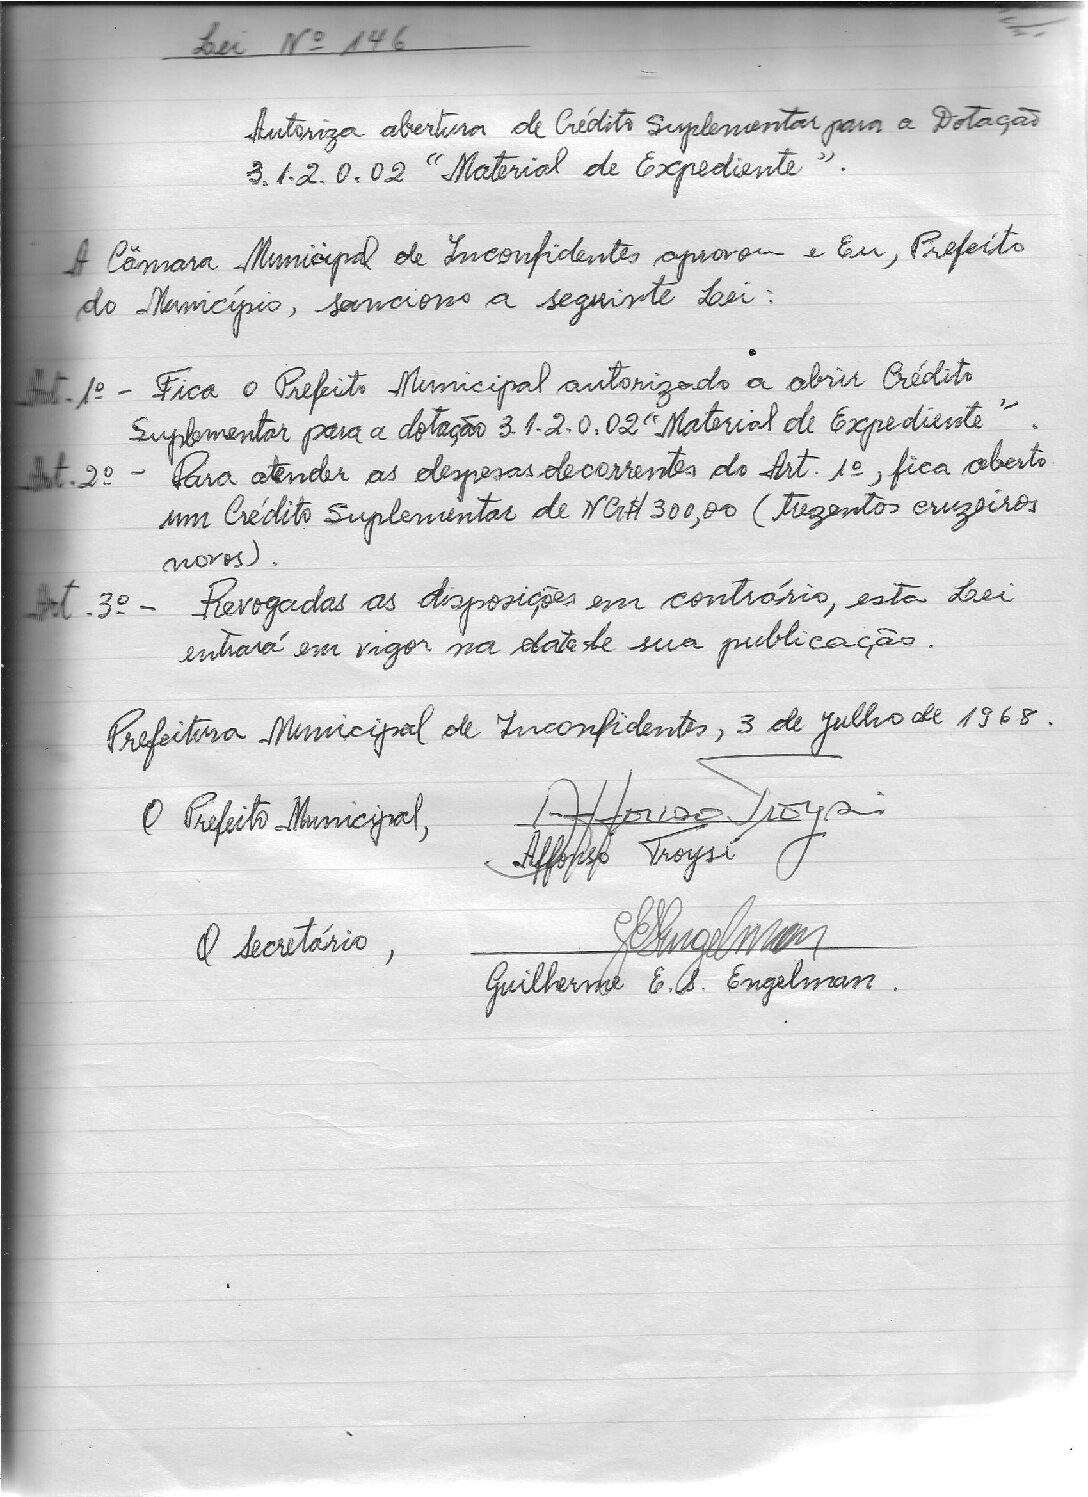 Lei Nº 146
Autoriza abertura de Crédito Suplementar para a Dotação
3.1.2.0.02 "Material de Expediente".
A Câmara Municipal de Inconfidentes aprovou e Eu, Prefeito
do Município, sanciono a seguinte Lei:
Art. 1º - Fica o Prefeito Municipal autorizado a abrir Crédito
Suplementar para a dotação 3.1.2.0.02 "Material de Expediente".
Art. 2º - Para atender as despesas decorrentes do Art. 1º, fica aberto
um Crédito Suplementar de NCr$ 300,00 (trezentos cruzeiros
novos).
Art. 3º - Revogadas as disposições em contrário, esta Lei
entrará em vigor na data de sua publicação.
Prefeitura Municipal de Inconfidentes, 3 de julho de 1968.
O Prefeito Municipal, Affonso Troysi
Affonso Troysi
O Secretário, GESEngelman
Guilherme E. S. Engelman.